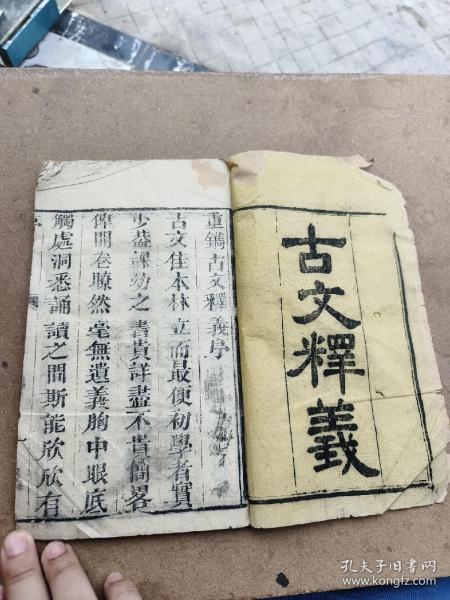 古文釋義
重鐫古文釋義序
古文佳本林立而最便初學者實
少蓋課幼之書貴詳盡不貴簡畧
俾開卷瞭然毫無遺義胸中眼底
觸處洞悉誦讀之間斯能欣欣有
孔夫子旧书网
www.kongfz.com